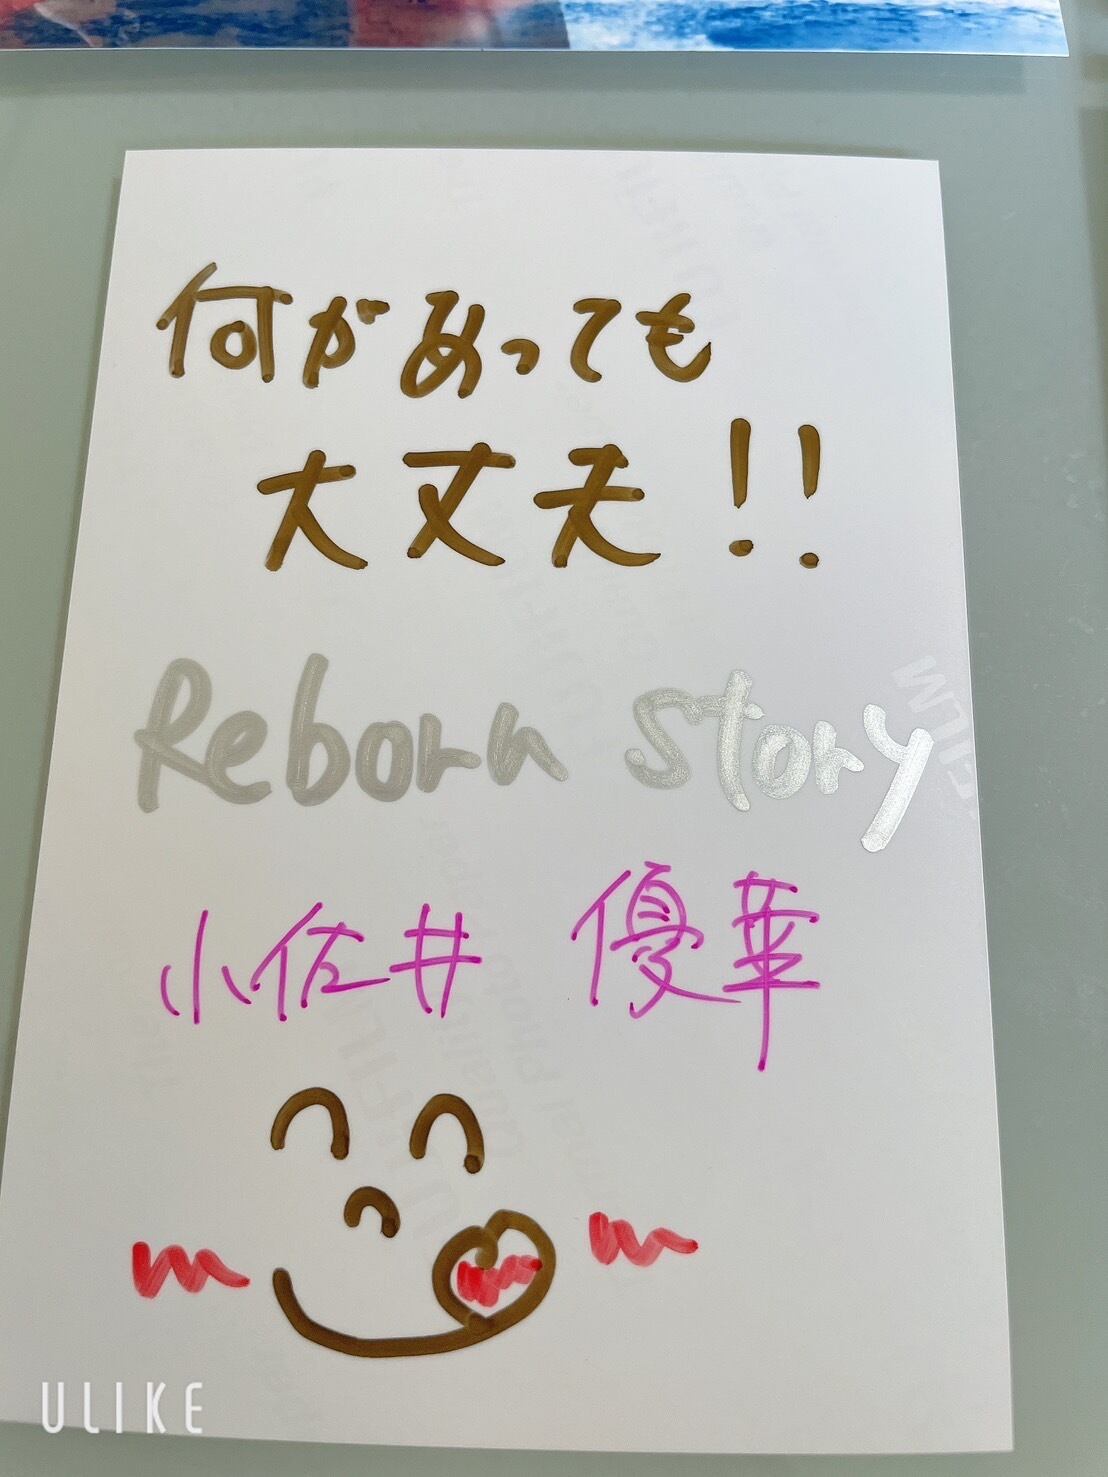 何があっても
大丈夫!!
Reborn Story
小佐井 優華
ULIKE